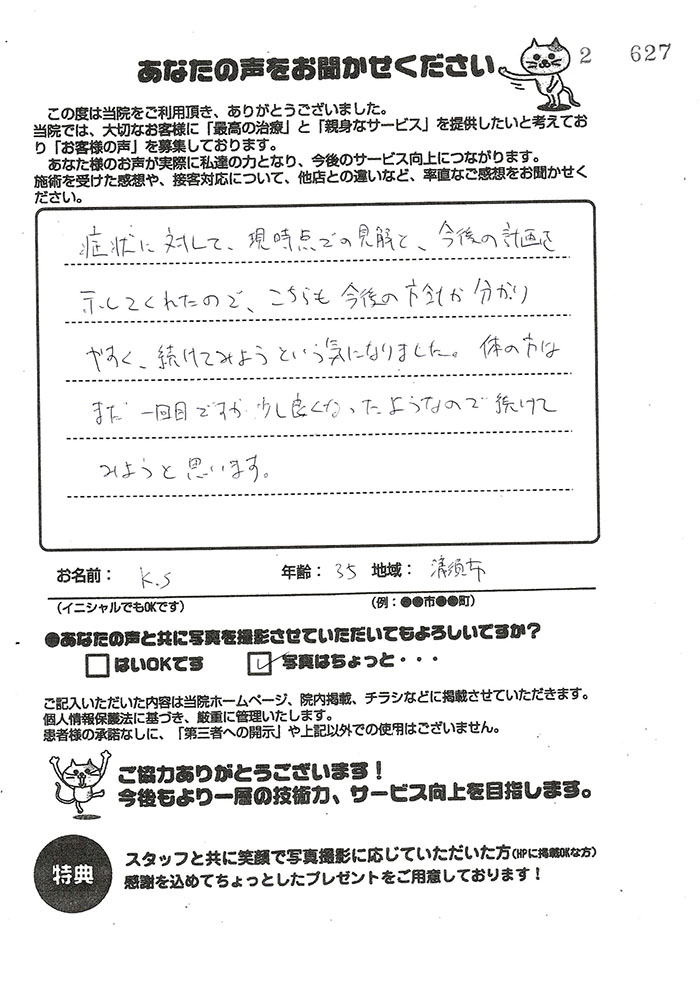 2 627
あなたの声をお聞かせください
この度は当院をご利用頂き、ありがとうございました。
当院では、大切なお客様に「最高の治療」と「親身なサービス」を提供したいと考えてお
り「お客様の声」を募集しております。
あなた様のお声が実際に私達の力となり、今後のサービス向上につながります。
施術を受けた感想や、接客対応について、他店との違いなど、率直なご感想をお聞かせく
ださい。
症状に対して、現時点での見解と、今後の計画を
示してくれたので、こちらも今後の方針が分かり
やすく、続けてみようという気になりました。体の方は
まだ一回目ですが少し良くなったようなので続けて
みようと思います。
お名前： K.S 年齢： 35 地域： 清須市
（イニシャルでもOKです） （例：●●市●●町）
●あなたの声と共に写真を撮影させていただいてもよろしいですか？
はいOKです 写真はちょっと・・・
ご記入いただいた内容は当院ホームページ、院内掲載、チラシなどに掲載させていただきます。
個人情報保護法に基づき、厳重に管理いたします。
患者様の承諾なしに、「第三者への開示」や上記以外での使用はございません。
ご協力ありがとうございます！
今後もより一層の技術力、サービス向上を目指します。
特典
スタッフと共に笑顔で写真撮影に応じていただいた方（HPに掲載OKな方）
感謝を込めてちょっとしたプレゼントをご用意しております！